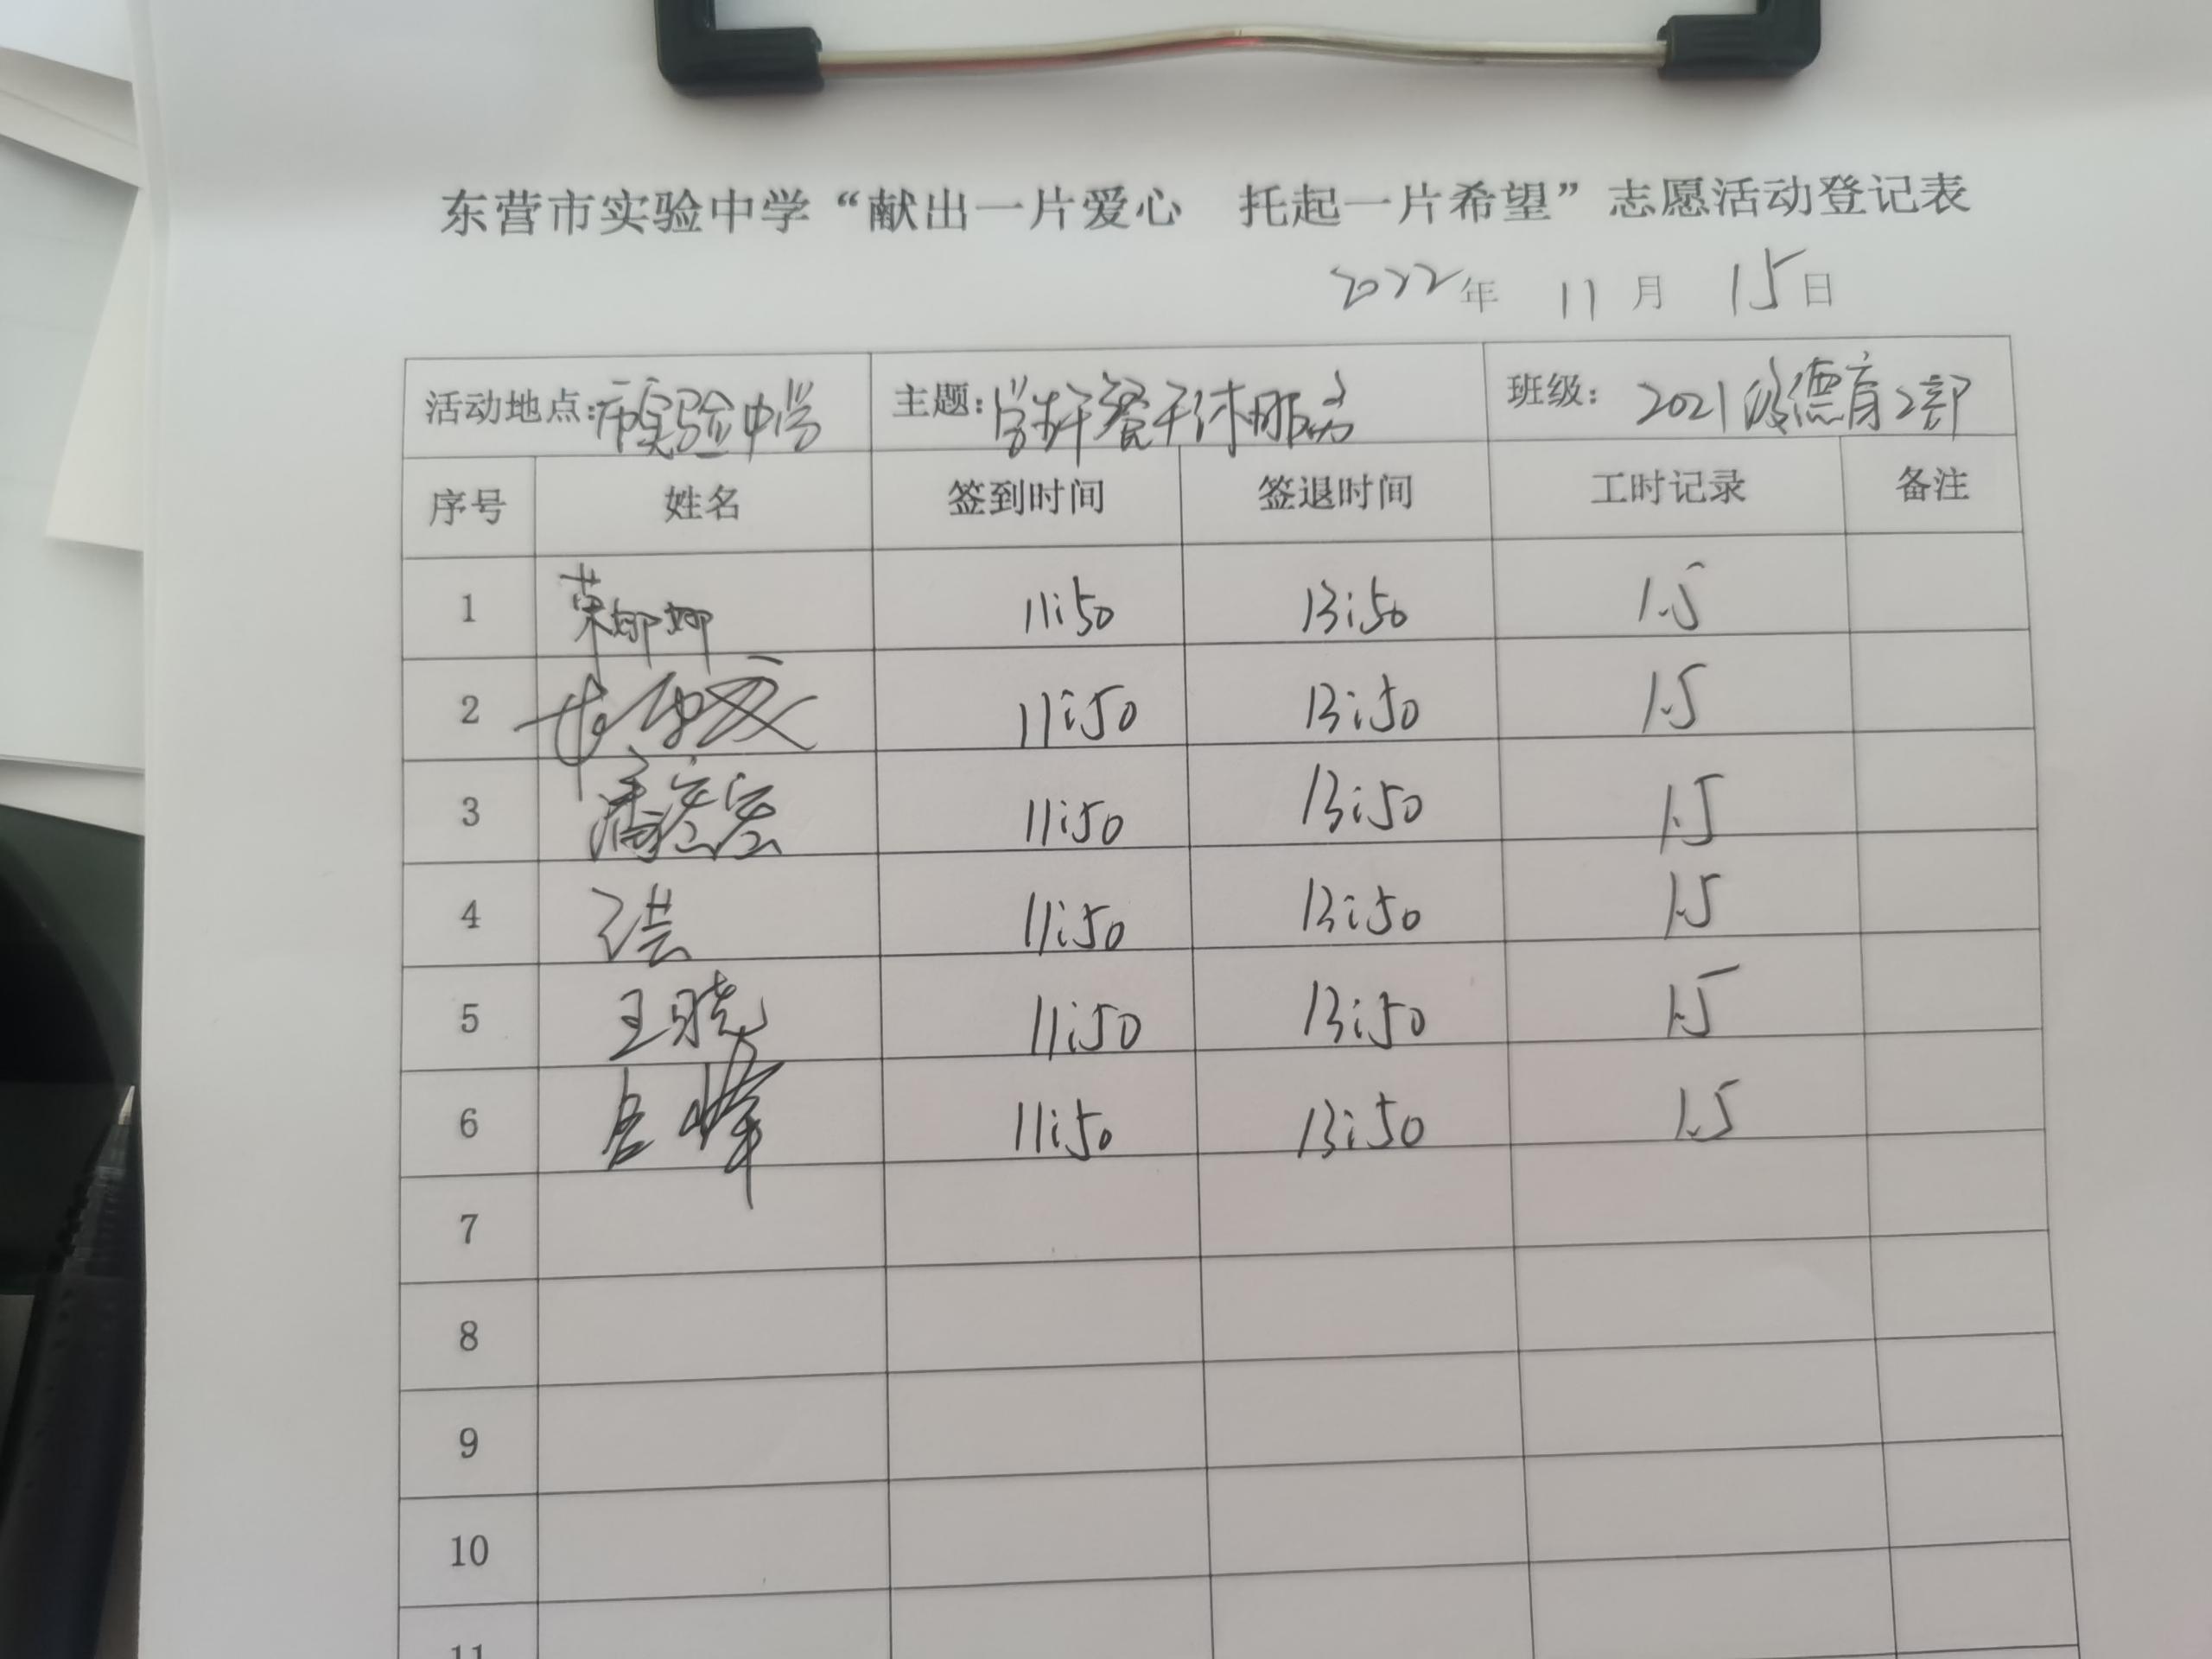 东营市实验中学“献出一片爱心 托起一片希望”志愿活动登记表
2022年 11月 15日
活动地点:市实验中学 主题:午休服务 班级: 2021级德育2部
序号 姓名 签到时间 签退时间 工时记录 备注
1 荣娜娜 11:50 13:50 1.5
2 11:50 13:50 1.5
3 11:50 13:50 1.5
4 11:50 13:50 1.5
5 王晓 11:50 13:50 1.5
6 11:50 13:50 1.5
7
8
9
10
11